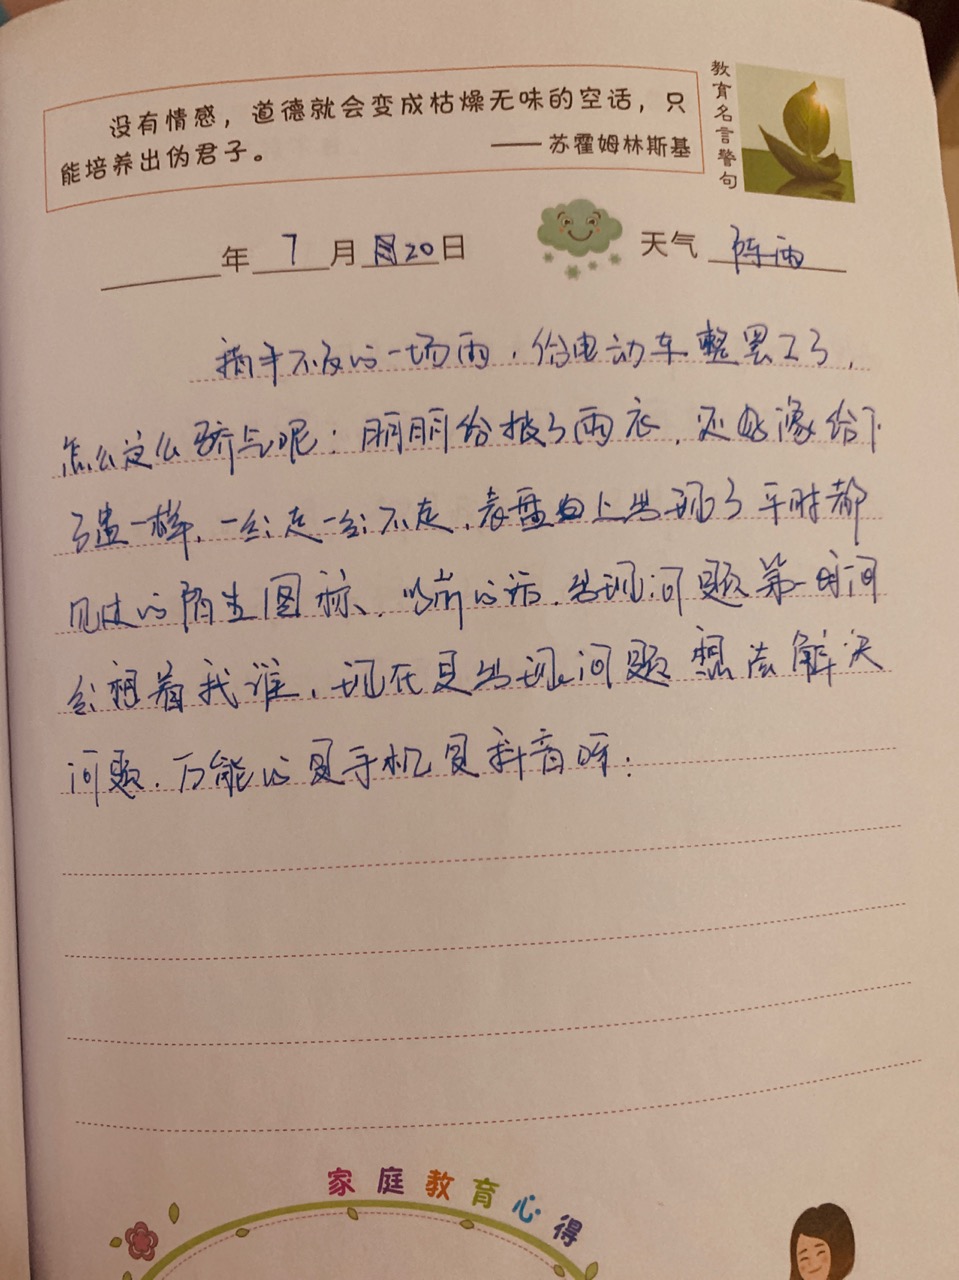 没有情感，道德就会变成枯燥无味的空话，只
能培养出伪君子。
——苏霍姆林斯基
教育名言警句
年 7 月 20 日
天气 阵雨
猝不及的一场雨，给电动车整罢工了，
怎么这么骄气呢；明明给披了雨衣，还好像给下
了蛊一样，一会走一会不走，表盘上出现了平时都
见过的陌生图标，以前的话，出现问题第一时间
会想着找谁，现在是出现问题想法解决
问题，万能的是手机是抖音呀；
家庭教育心得